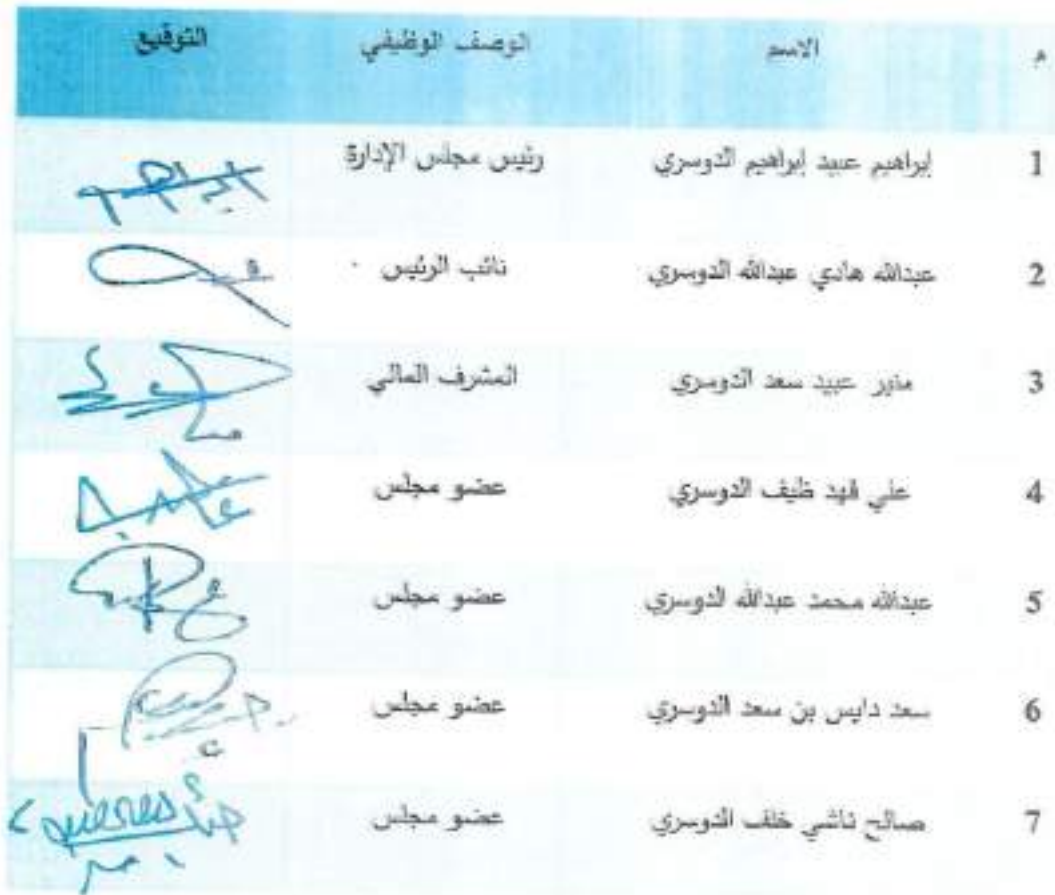 م الاسم الوصف الوظيفي التوقيع
1 إبراهيم عبيد إبراهيم الدوسري رئيس مجلس الإدارة
2 عبدالله هادي عبدالله الدوسري نائب الرئيس
3 منير عبيد سعد الدوسري المشرف المالي
4 علي فهد ظيف الدوسري عضو مجلس
5 عبدالله محمد عبدالله الدوسري عضو مجلس
6 سعد دايس بن سعد الدوسري عضو مجلس
7 صالح ناشي خلف الدوسري عضو مجلس